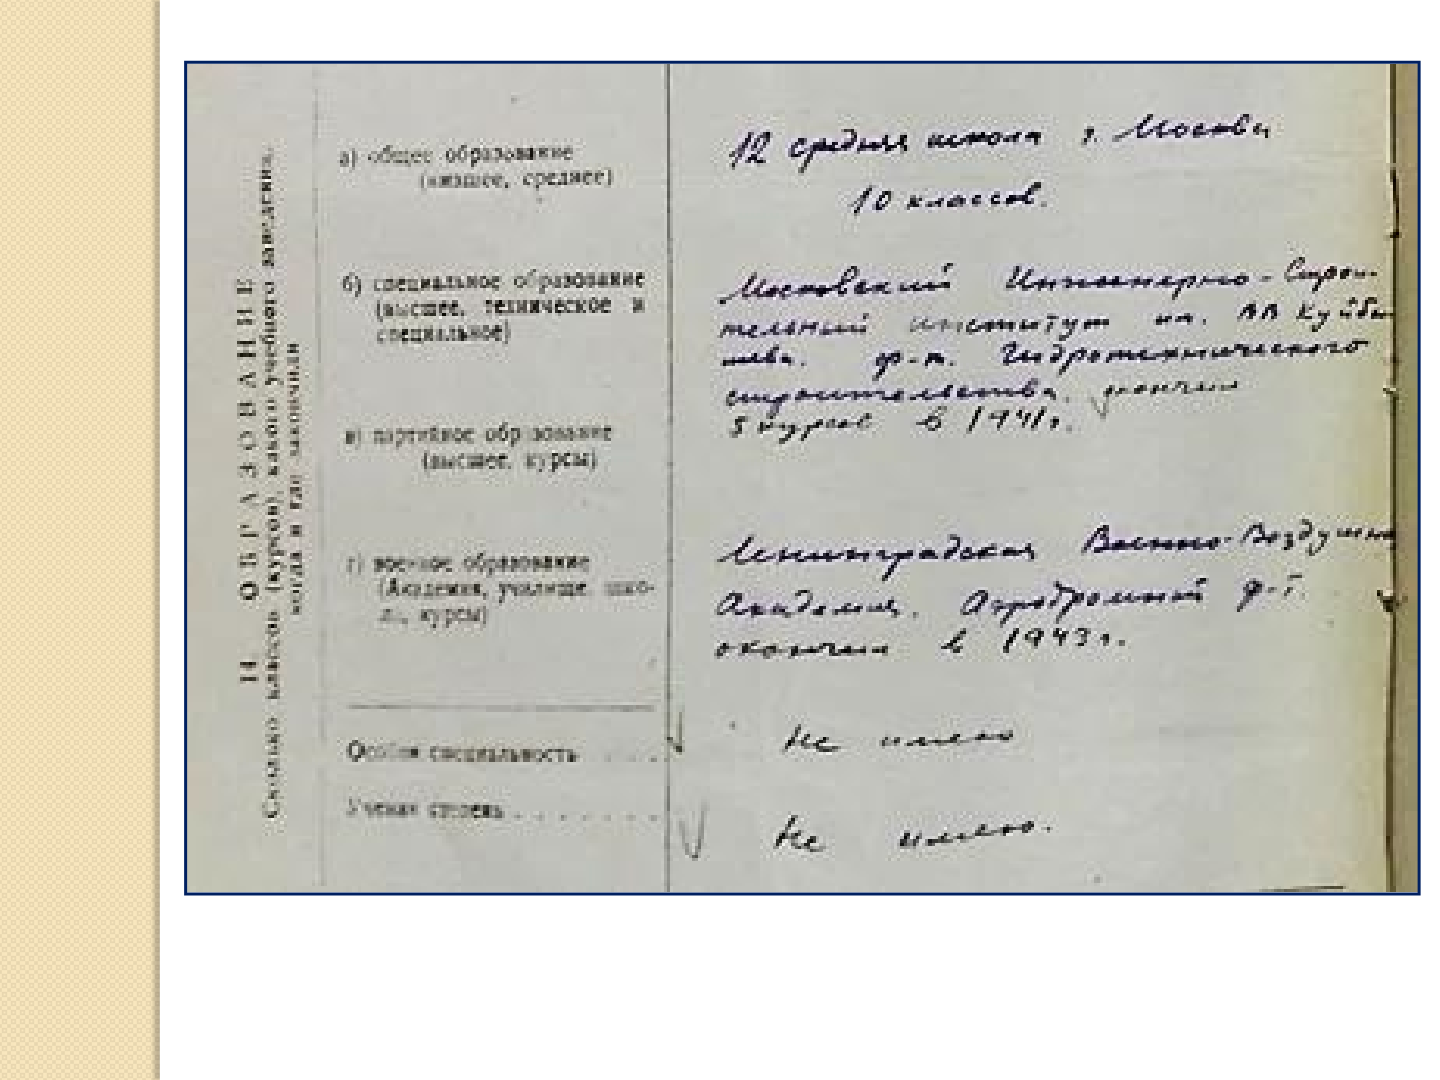 II ОБРАЗОВАНИЕ
Сколько классов (курсов), какого учебного заведения,
когда и где закончили
а) общее образование
(низшее, среднее)
12 средняя школа г. Москвы
10 классов.
б) специальное образование
(высшее, техническое и
специальное)
Московский Инженерно-Строи-
тельный институт им. ВВ Куйбы
шева. ф-т. Гидротехнического
строительства. окончил
5 курсов в 1941г.
в) партийное образование
(высшее, курсы)
г) военное образование
(Академия, училище, шко-
ла, курсы)
Ленинградская Военно-Воздушная
Академия. Аэродромный ф-т.
окончил в 1943г.
Особая специальность . . . .
Не имею
Ученая степень . . . . . . .
Не имею.